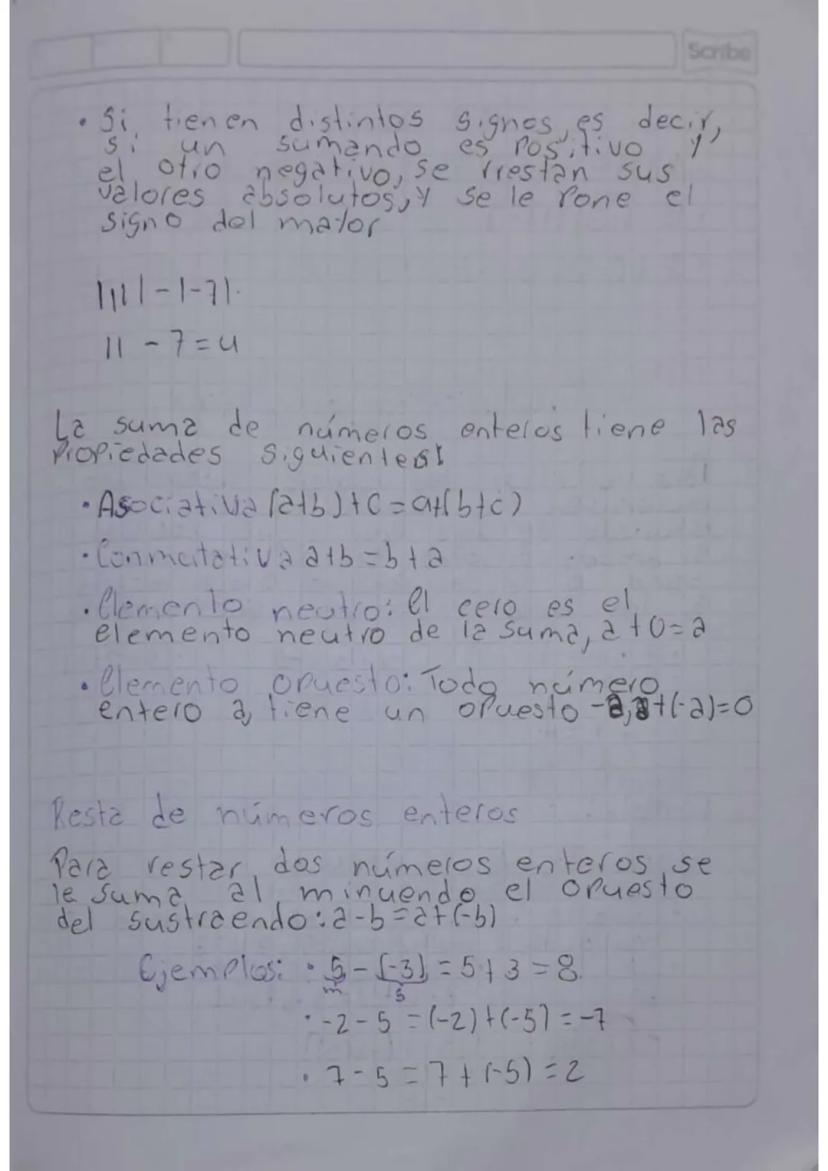 Scribe
• Si tienen distintos signos, es decir,
si un sumando es positivo y
el otro negativo, se rrestan sus
valores absolutos, y se le pone el
signo del mayor
|11| - |-7|.
11 - 7 = 4
La suma de números enteros tiene las
Propiedades siguientes:
• Asociativa (a+b)+c = a+(b+c)
• Conmutativa a+b = b+a
• Elemento neutro: El cero es el
elemento neutro de la suma, a+0=a
• Elemento opuesto: Todo número
entero a, tiene un opuesto -a, a+(-a)=0
Resta de números enteros
Para restar dos números enteros se
le suma al minuendo el opuesto
del sustraendo: a-b=a+(-b)
Ejemplos: • 5 - (-3) = 5+3 = 8
m s
• -2 - 5 = (-2)+(-5) = -7
• 7 - 5 = 7 + (-5) = 2